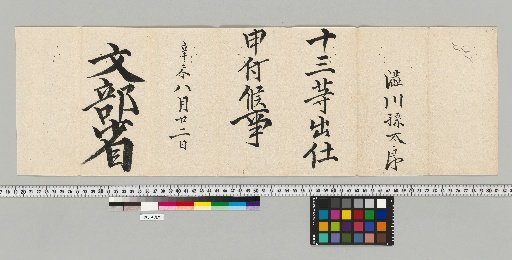 澁川孫太郎
十三等出仕
申付候事
辛未八月廿二日
文部省